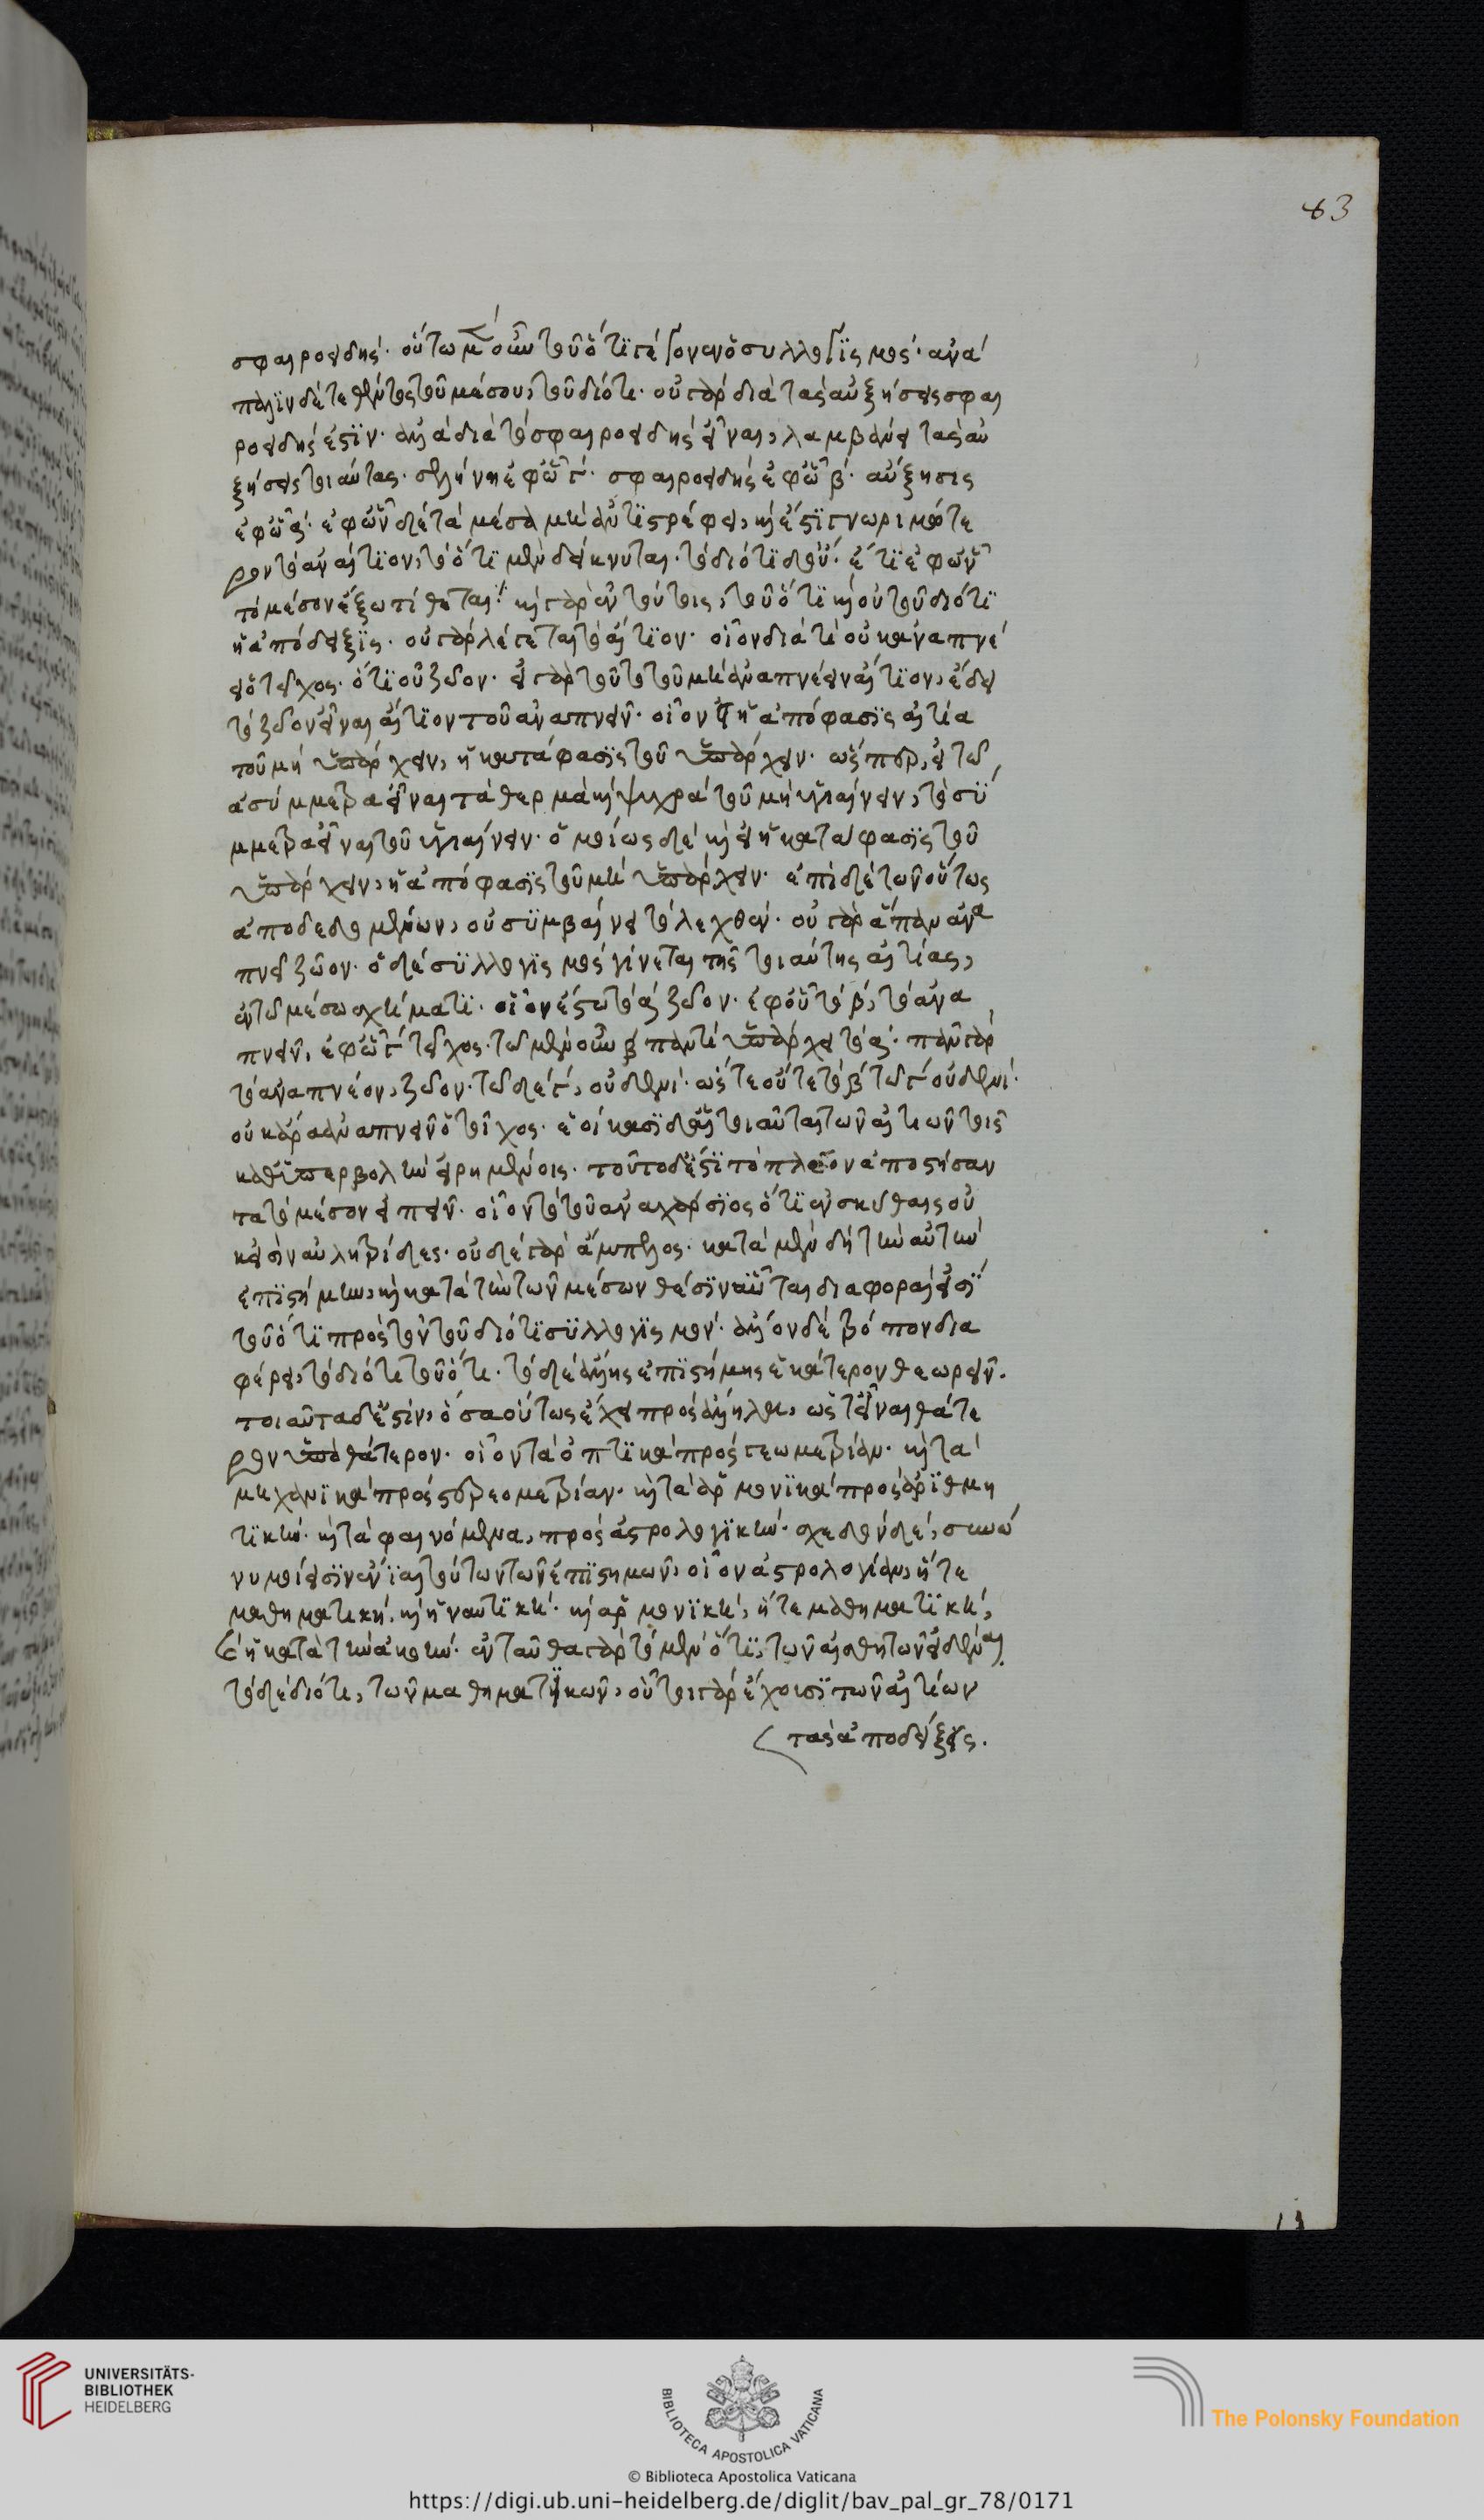 σφαιροειδής· οὕτω μὲν οὖν τοῦ ὅτι γέγονεν ὁ συλλογισμός· ἀνά
παλιν δὲ τεθέντος τοῦ μέσου, τοῦ διότι· οὐ γὰρ διὰ τὰς αὐξήσεις σφαι
ροειδής ἐστιν· ἀλλὰ διὰ τὸ σφαιροειδὴς εἶναι, λαμβάνει τὰς αὐ
ξήσεις τοιαύτας· σελήνη ἐφ' ὧ γ· σφαιροειδὴς ἐφ' ὧ β· αὔξησις
ἐφ' ὧ α· ἐφ' ὧν δὲ τὰ μέσα μὴ ἀντιστρέφει, καὶ ἔστι γνωριμώτε
ρον τὸ ἀναίτιον, τὸ ὅτι μὲν δείκνυται· τὸ διότι δ' οὔ· ἔτι ἐφ' ὧν
τὸ μέσον ἔξω τίθεται· καὶ γὰρ ἐν τούτοις, τοῦ ὅτι καὶ οὐ τοῦ διότι
ἡ ἀπόδειξις· οὐ γὰρ λέγεται τὸ αἴτιον· οἷον διὰ τί οὐκ ἀναπνέ
ει ὁ τοῖχος· ὅτι οὐ ζῶον· εἰ γὰρ τοῦτο τοῦ μὴ ἀναπνέειν αἴτιον, ἔδει
τὸ ζῶον εἶναι αἴτιον τοῦ ἀναπνεῖν· οἷον εἰ ἡ ἀπόφασις αἰτία
τοῦ μὴ ὑπάρχειν, ἡ κατάφασις τοῦ ὑπάρχειν· ὥσπερ, εἰ τὸ
ἀσύμμετρα εἶναι τὰ θερμὰ καὶ ψυχρὰ τοῦ μὴ ὑγιαίνειν, τὸ σύ
μμετρα εἶναι τοῦ ὑγιαίνειν· ὁμοίως δὲ καὶ εἰ ἡ κατάφασις τοῦ
ὑπάρχειν, ἡ ἀπόφασις τοῦ μὴ ὑπάρχειν· ἐπὶ δὲ τῶν οὕτως
ἀποδεδομένων, οὐ συμβαίνει τὸ λεχθέν· οὐ γὰρ ἅπαν ἀνα
πνεῖ ζῶον· ὁ δὲ συλλογισμὸς γίνεται τῆς τοιαύτης αἰτίας,
ἐν τῶ μέσω σχήματι· οἷον ἔστω τὸ α ζῶον· ἐφ' οὗ τὸ β, τὸ ἀνα
πνεῖν, ἐφ' ὧ γ τοῖχος· τῶ μὲν οὖν β παντὶ ὑπάρχει τὸ α· πᾶν γὰρ
τὸ ἀναπνέον, ζῶον· τῶ δὲ γ, οὐδενί· ὥστε οὔτε τὸ β τῶ γ οὐδενί·
οὐκ ἄρα ἀναπνεῖ ὁ τοῖχος· ἐοίκασι δ' αἱ τοιαῦται τῶν αἰτιῶν τοῖς
καθ' ὑπερβολὴν εἰρημένοις· τοῦτο δ' ἔστι τὸ πλέον ἀποστήσαν
τα τὸ μέσον εἰπεῖν· οἷον τὸ τοῦ ἀναχάρσιος ὅτι ἐν σκύθαις οὐ
κ εἰσὶν αὐλητρίδες· οὐδὲ γὰρ ἄμπελος· κατὰ μὲν δὴ τὴν αὐτὴν
ἐπιστήμην, καὶ κατὰ τὴν τῶν μέσων θέσιν αὗται διαφοραί εἰσι
τοῦ ὅτι πρὸς τὸν τοῦ διότι συλλογισμόν· ἄλλον δὲ τρόπον δια
φέρει, τὸ διότι τοῦ ὅτι· τὸ δὲ ἄλλης ἐπιστήμης ἑκάτερον θεωρεῖν·
τοιαῦτα δ' ἐστίν, ὅσα οὕτως ἔχει πρὸς ἄλληλα, ὥστ' εἶναι θάτε
ρον ὑπὸ θάτερον· οἷον τὰ ὀπτικὰ πρὸς γεωμετρίαν· καὶ τὰ
μηχανικὰ πρὸς στερεομετρίαν· καὶ τὰ ἁρμονικὰ πρὸς ἀριθμη
τικήν· καὶ τὰ φαινόμενα, πρὸς ἀστρολογικήν· σχεδὸν δὲ, συνώ
νυμοί εἰσιν ἔνιαι τούτων τῶν ἐπιστημῶν, οἷον ἀστρολογία, ἥτε
μαθηματική, καὶ ἡ ναυτική· καὶ ἁρμονική, ἥτε μαθηματική,
καὶ ἡ κατὰ τὴν ἀκοήν· ἐνταῦθα γὰρ τὸ μὲν ὅτι, τῶν αἰσθητῶν εἰδέναι·
τὸ δὲ διότι, τῶν μαθηματικῶν, οὗτοι γὰρ ἔχουσι τῶν αἰτίων
τὰς ἀποδείξεις.
83
UNIVERSITÄTS-
BIBLIOTHEK
HEIDELBERG
BIBLIOTECA APOSTOLICA VATICANA
The Polonsky Foundation
© Biblioteca Apostolica Vaticana
https://digi.ub.uni-heidelberg.de/diglit/bav_pal_gr_78/0171